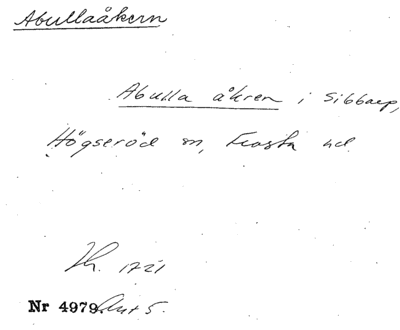 Abullaåkern
Abulla åkren i Sibbarp,
Högseröd sn, Frosta hd
Jb. 1721
Nr 4979 Akt 5.